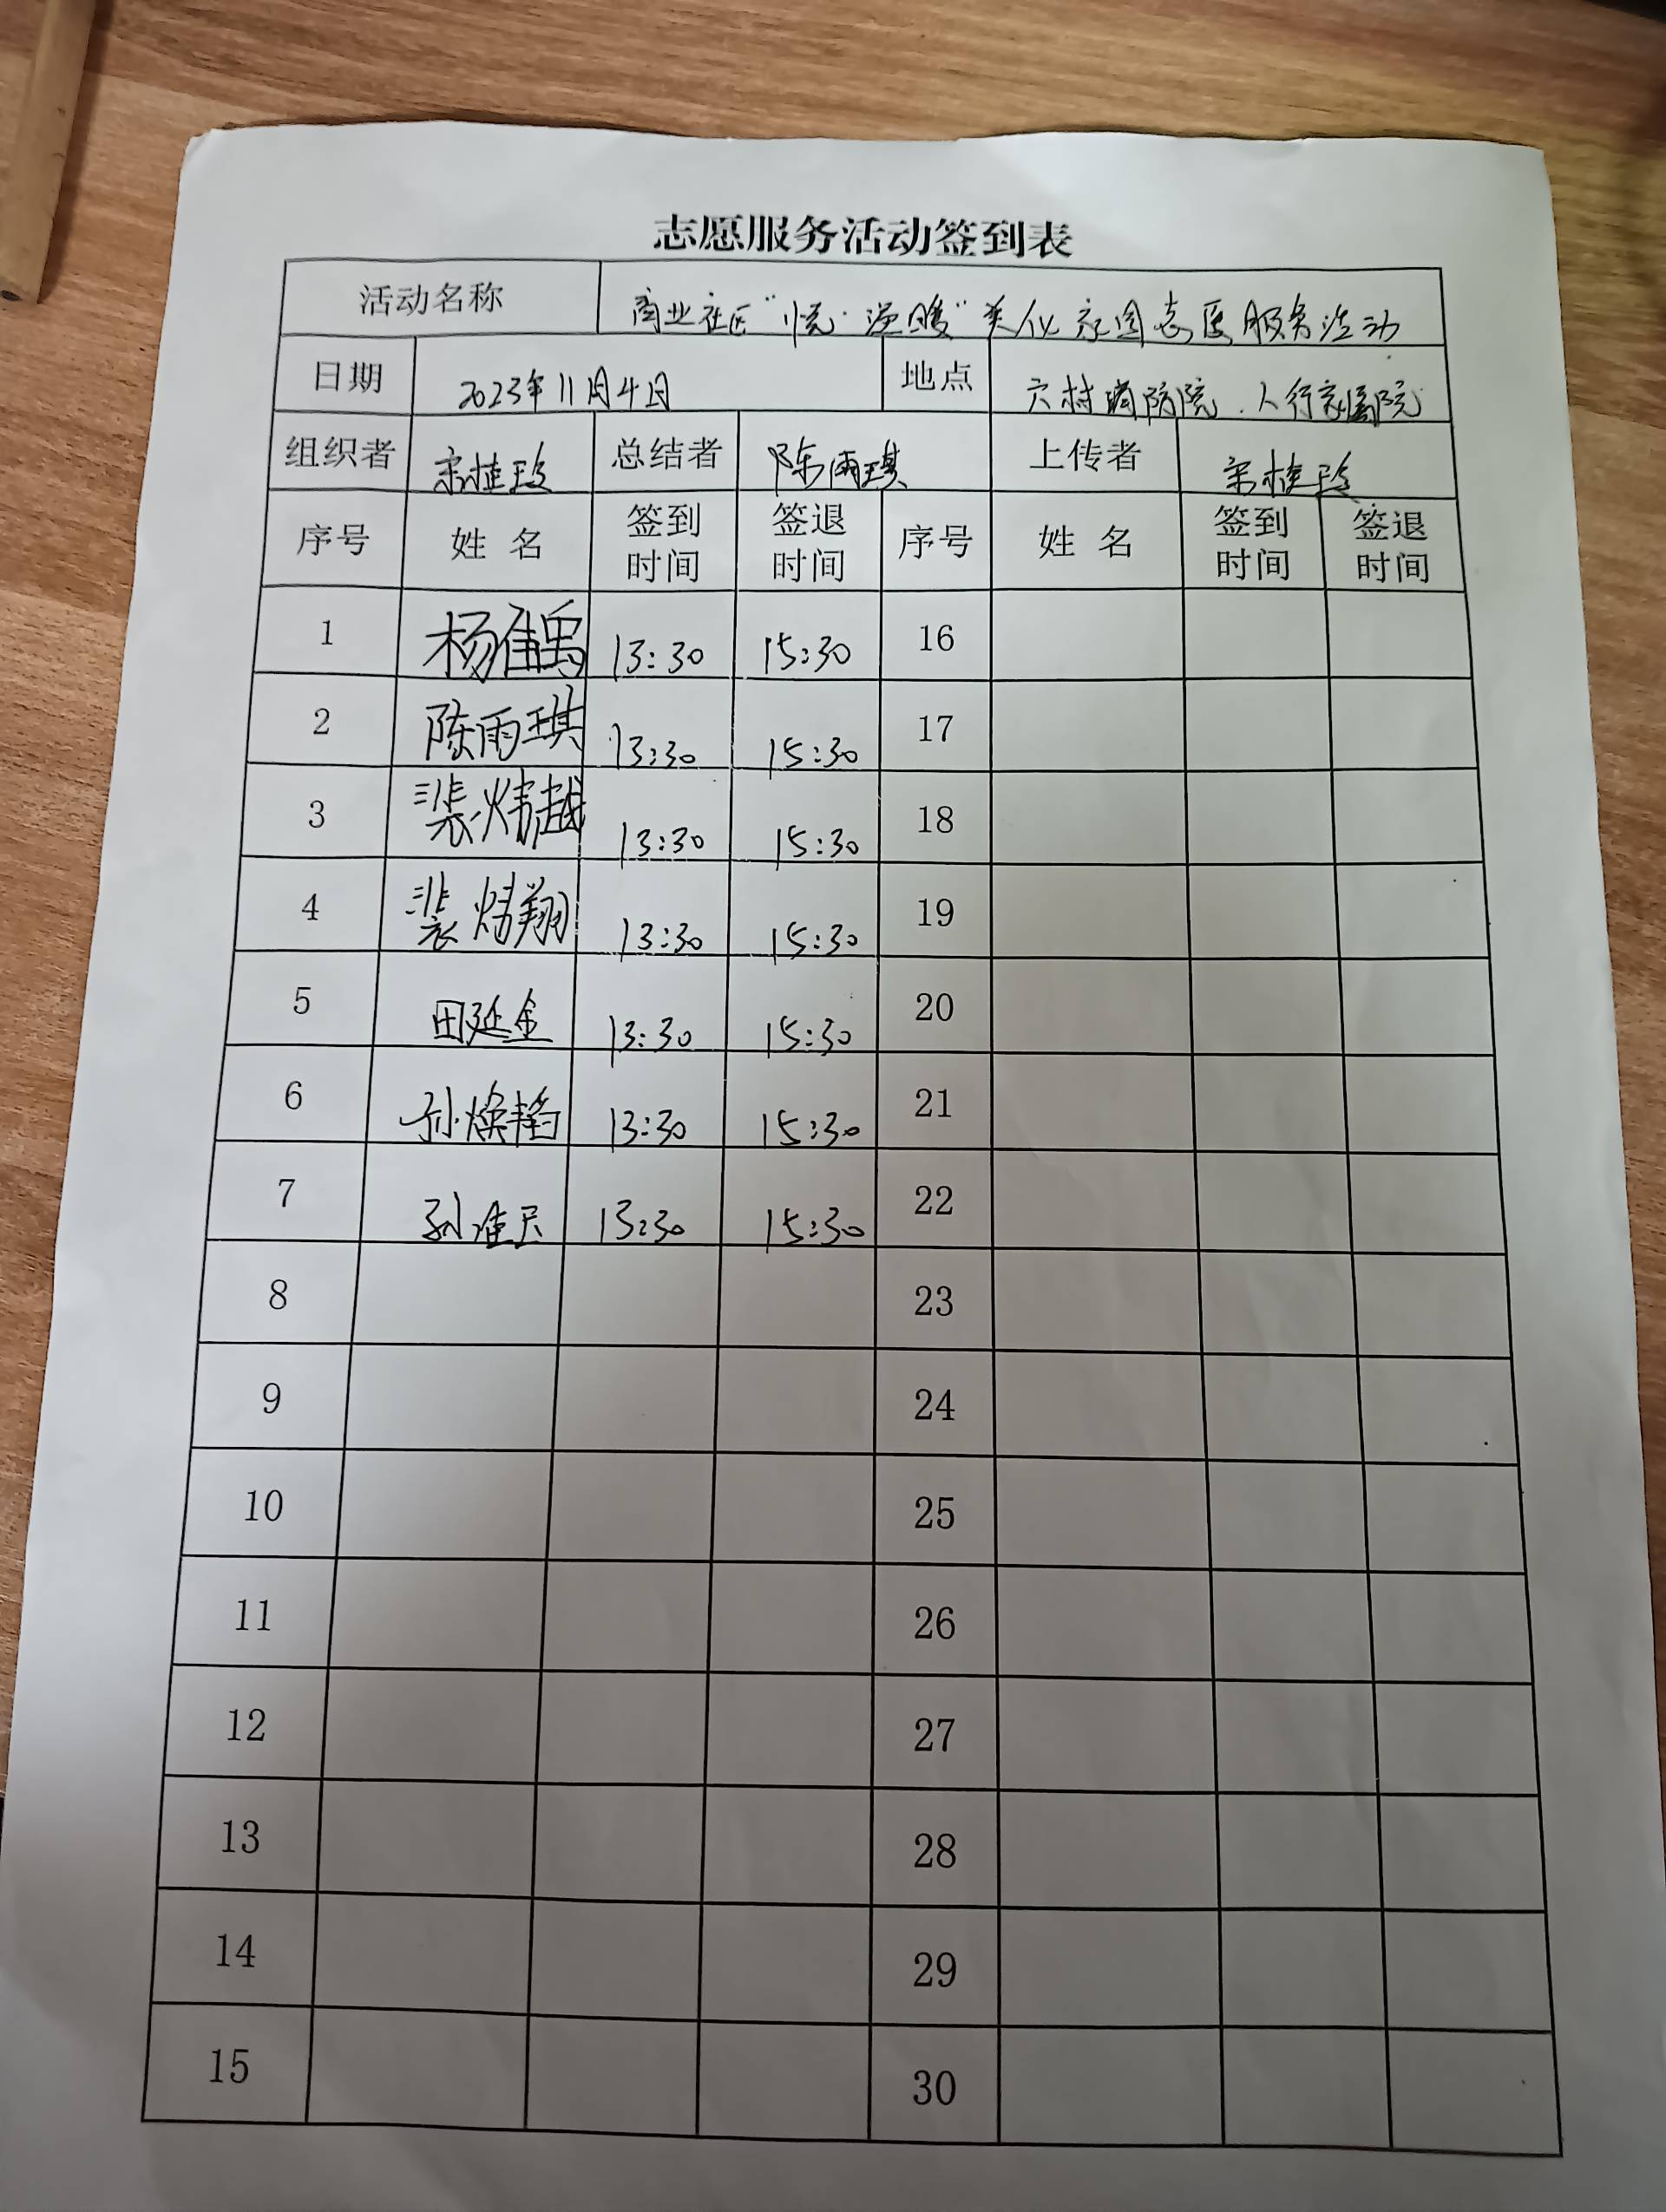 志愿服务活动签到表
活动名称 商业社区“悦·温暖”美化家园志愿服务活动
日期 2023年11月4日 地点 六村消防院、人行家属院
组织者 宋桂玲 总结者 陈雨琪 上传者 宋桂玲
序号 姓名 签到时间 签退时间 序号 姓名 签到时间 签退时间
1 13:30 15:30 16
2 陈雨琪 13:30 15:30 17
3 裴炜越 13:30 15:30 18
4 裴炜翔 13:30 15:30 19
5 田延金 13:30 15:30 20
6 孙焕韬 13:30 15:30 21
7 13:30 15:30 22
8 23
9 24
10 25
11 26
12 27
13 28
14 29
15 30